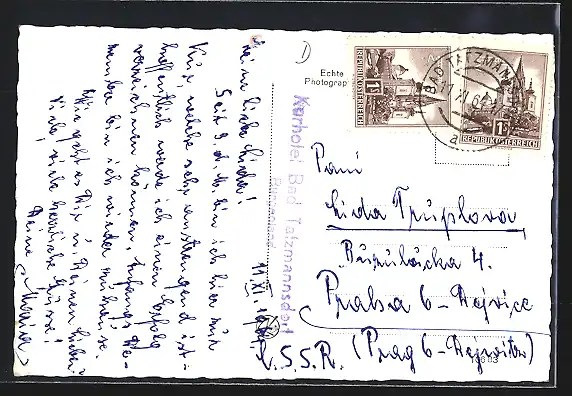 Meine liebe Lida!
Seit 9. d. M. bin ich hier zur
Kur, welche sehr anstrengend ist -
hoffentlich werde ich einen Erfolg
verzeichnen können. Anfangs De-
zember bin ich wieder zuhause.
Wie geht es Dir u. Deinen Lieben?
Viele, viele herzliche Grüsse!
Deine Maria
11. XI.
Kurhotel Bad Tatzmannsdorf
Burgenland
Echte
Photographie
REPUBLIK ÖSTERREICH
1S
BAD TATZMANNSDORF
a
1S
REPUBLIK ÖSTERREICH
Paní
Lida Truplova
4.
Praha 6 - Dejvice
Č.S.S.R. (Prag 6-Dejvitz)